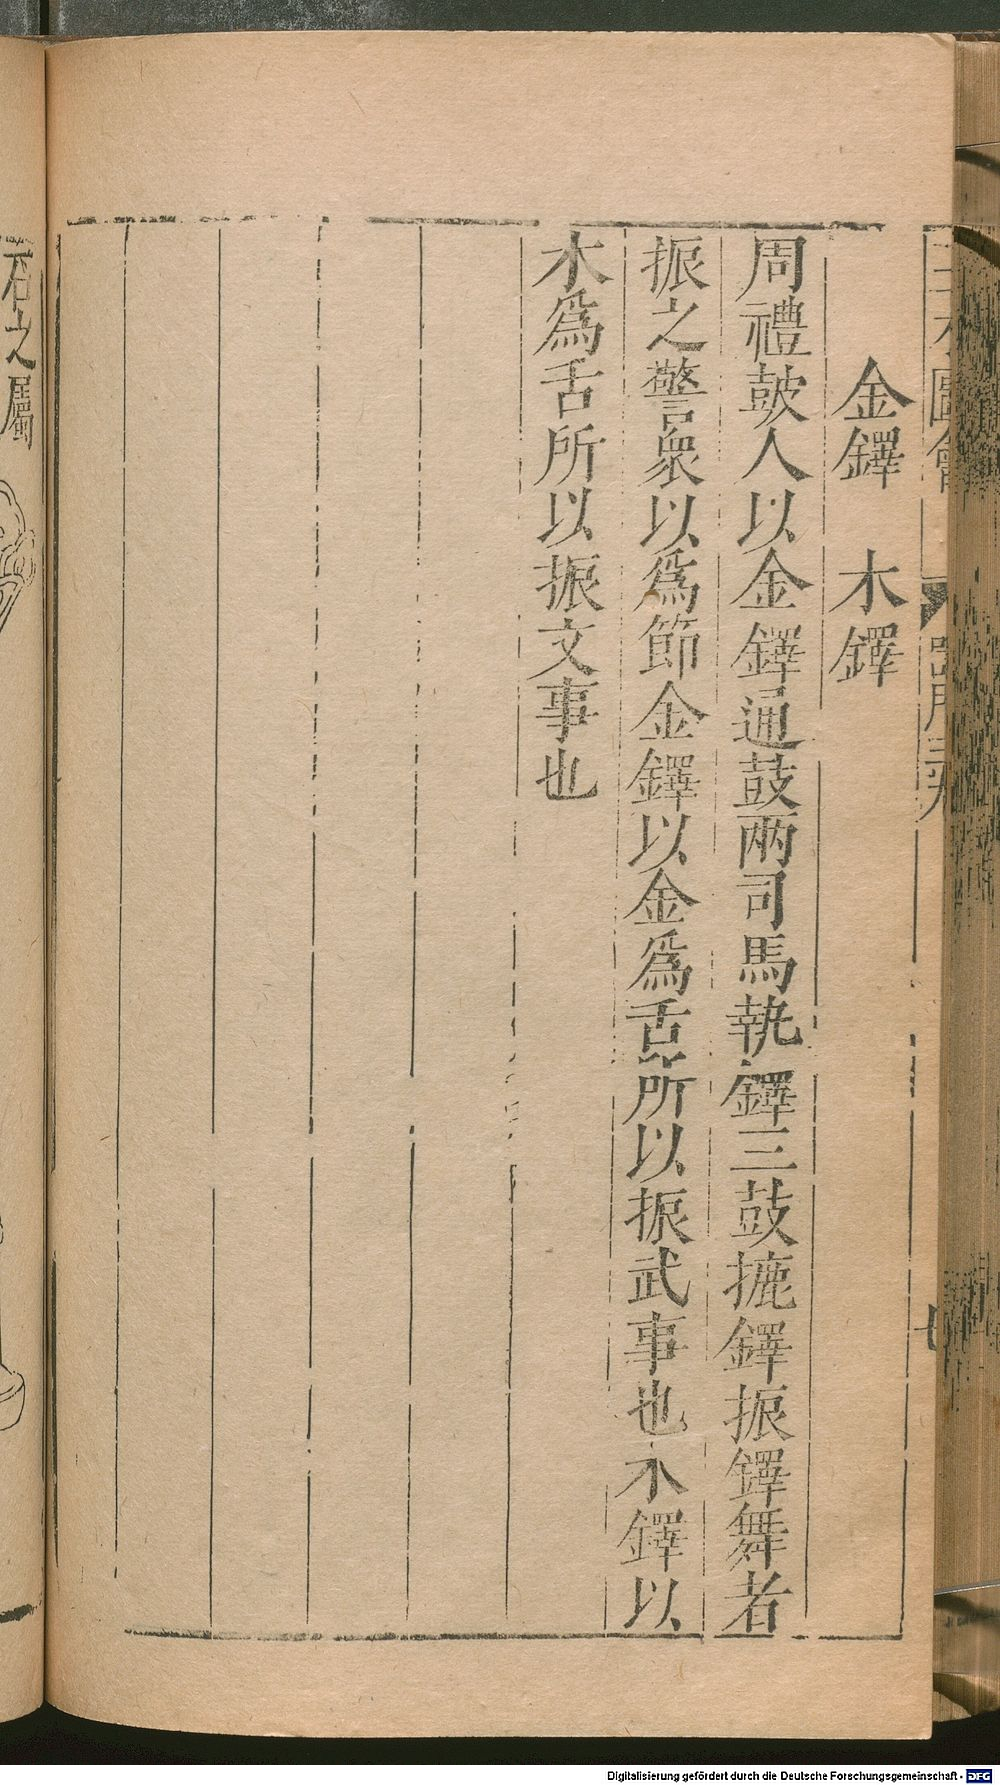 三才圖會
器用三卷
七
金鐸　木鐸
周禮鼓人以金鐸通鼓兩司馬執鐸三鼓摝鐸振鐸舞者
振之警衆以爲節金鐸以金爲舌所以振武事也木鐸以
木爲舌所以振文事也
若之屬
Digitalisierung gefördert durch die Deutsche Forschungsgemeinschaft - DFG